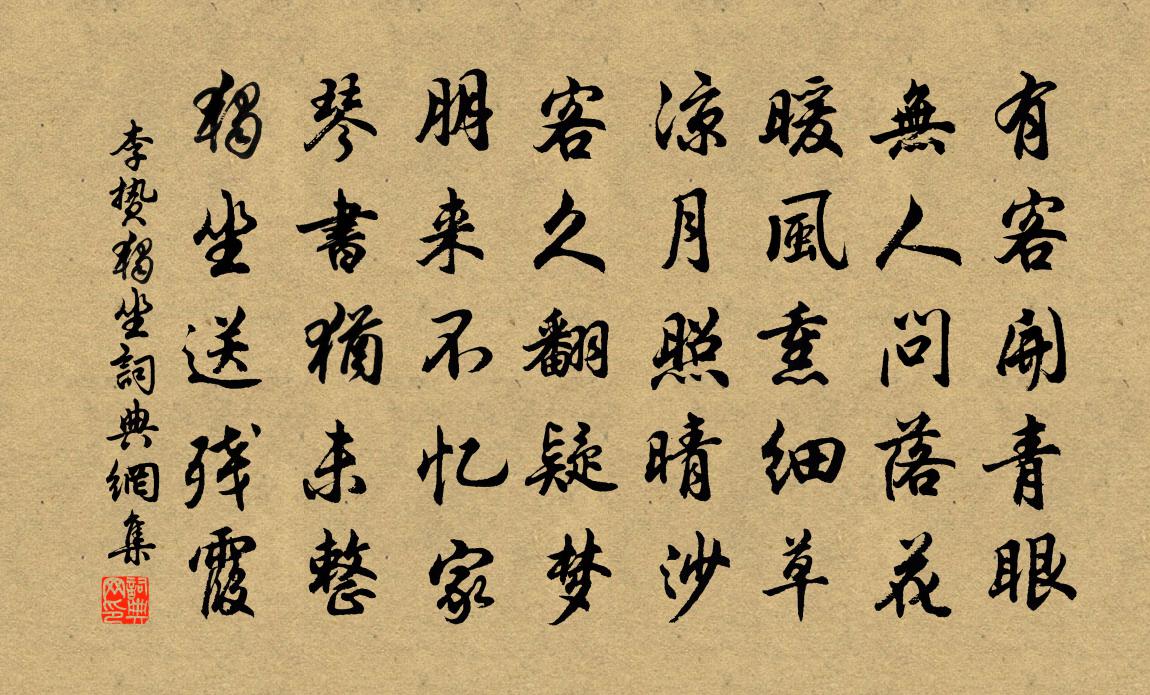 有客開青眼
無人問落花
暖風熏細草
涼月照晴沙
客久翻疑梦
朋来不忆家
琴書猶未整
獨坐送残霞
李贄獨坐詞典網集
詞典网印